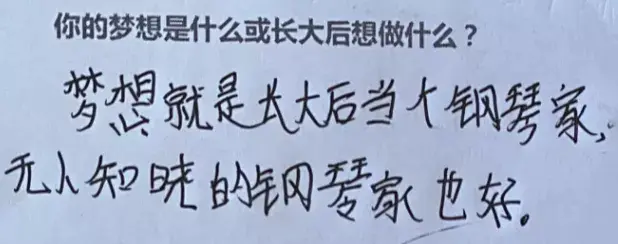 你的梦想是什么或长大后想做什么？
梦想就是长大后当个钢琴家，
无人知晓的钢琴家也好。